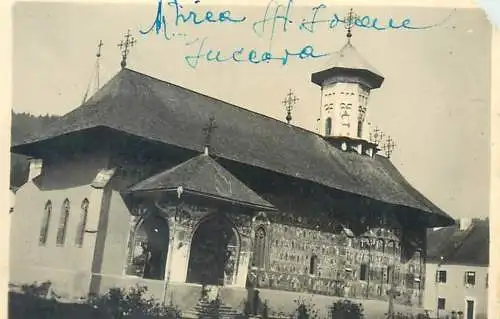 Mtirea Sf. Ioane
Suceava